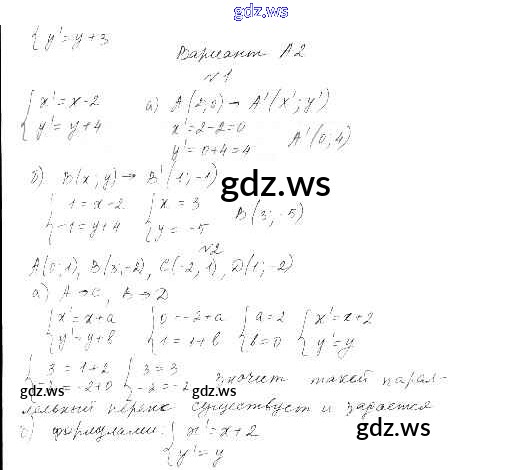 gdz.ws
{ y' = y + 3
Вариант А2
№1
{ x' = x - 2
y' = y + 4
а) A(2; 0) → A'(x'; y')
x' = 2 - 2 = 0
y' = 0 + 4 = 4
A'(0; 4)
б) B(x; y) → B'(1; -1)
{ 1 = x - 2
-1 = y + 4
{ x = 3
y = -5
B(3; -5)
gdz.ws
№2
A(0; 1), B(3; -2), C(-2; 1), D(1; -2)
а) A → C, B → D
{ x' = x + a
y' = y + b
{ 0 = -2 + a
1 = 1 + b
{ a = 2
b = 0
{ x' = x + 2
y' = y
{ 3 = 1 + 2
-2 = -2 + 0
{ 3 = 3
-2 = -2
значит такой парал-
лельный перенс существует и задается
формулами: { x' = x + 2
y' = y
gdz.ws
gdz.ws